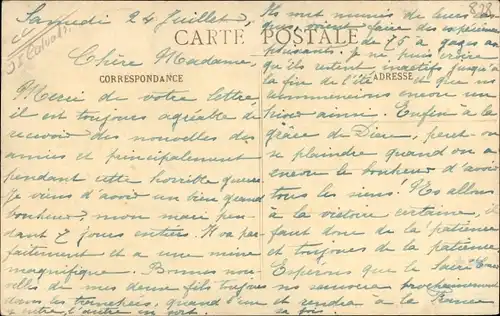 Samedi 24 Juillet
CARTE POSTALE
CORRESPONDANCE
ADRESSE
Chère Madame,
Merci de votre lettre,
il est toujours agréable de
recevoir des nouvelles des
amies et principalement
pendant cette horrible guerre
Je viens d'avoir un bien grand
bonheur, mon mari pen-
dant 7 jours entiers. Il va par-
faitement et a une mine
magnifique. Bonnes nou-
velles de mes deux fils toujours
dans les tranchées, quand l'un
y entre, l'autre en sort.
Ils sont munis de leurs
faire des
de 75 à gaz
puissants. Je ne puis croire
qu'ils restent inactifs jusqu'à
la fin de l'été et que nous
commencions encore un
hiver ainsi. Enfin à la
grâce de Dieu, peut-on
se plaindre quand on a
encore le bonheur d'avoir
tous les siens! Nous allons
à la victoire certaine, il
faut donc de la patience
et toujours de la patience
Espérons que le Sacré Cœur
nous sauvera prochainement
et rendra à la France
sa foi.